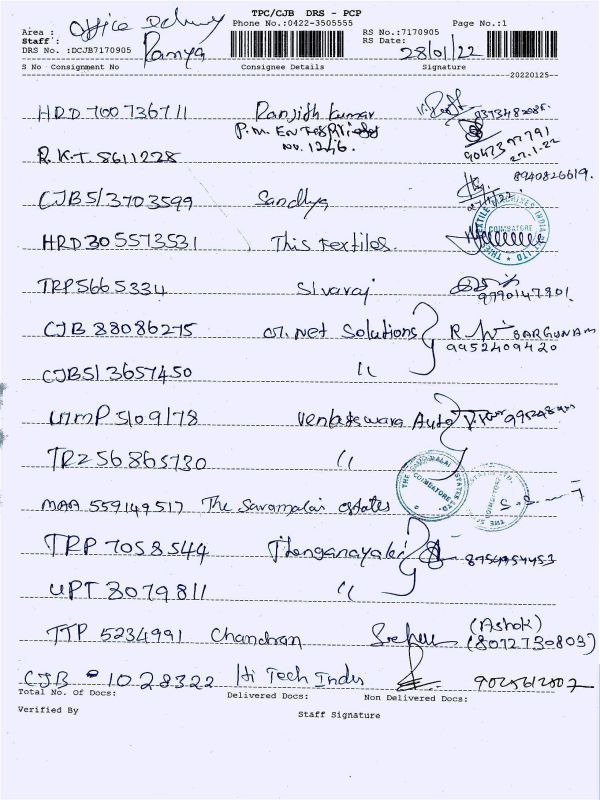 TPC/CJB DRS - PCP
Area : Office Delivery Phone No.:0422-3505555 RS No.:7170905 Page No.:1
Staff: Ramya RS Date: 28/01/22
DRS No. :DCJB7170905
S No Consignment No Consignee Details Signature
20220125
HRD 700736711 Ranjith Kumar
P.M. Enterprises
No. 1246.
R.K.T. 8611228 27.1.22
8940826619.
CJB513703599 Sandhya
HRD305573531 This textiles.
COIMBATORE
TRP5665334 Sivaraj
CJB 88086275 Net Solutions R BARGUNAM
9952409420
CJB513657450 "
UTMP 5109178 Venkateswara Auto
TRZ56865730 "
COIMBATORE
MAA 559149517 The Savamalai estates
TRP 7058544 Thenganayaki 8754954453
UPT 3079811 "
TTP 5234991 Chandran (Ashok)
(8072730803)
CJB 1028322 Hi Tech Indus 9025612502
Total No. of Docs: Delivered Docs: Non Delivered Docs:
Verified By Staff Signature